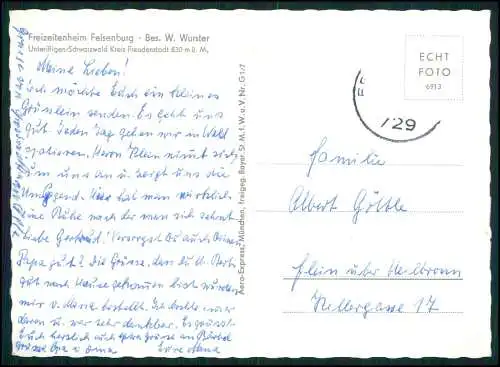 Freizeitenheim Felsenburg - Bes. W. Wurster
Unteriflingen-Schwarzwald Kreis Freudenstadt 630 m ü. M.
Meine Lieben!
Ich möchte Euch ein kleines
Grüßlein senden. Es geht uns
gut. Jeden Tag gehen wir in Wald
spatieren. Herrn Klein nimmt sich
um uns an u. zeigt uns die
Umgegend. Hier hat man wirklich
eine Ruhe nach der man sich sehnt
Liebe Gertrud! Versorgst Du auch Deinen
Papa gut? Die Grüsse, dass
gut nach Hause gekommen bist wurden
mir v. bestellt. Ich dachte immer
daran u. war sehr dankbar. Es grüsst
Euch herzlich auch Opa grüsse an Bärbel
Grüsse Opa u. Oma Eure
Aero-Express, München, freigeg. Bayer. St. M. f. W. u. V. Nr. G 1/1
ECHT
FOTO
6913
729
Familie
Albert Göttle
Flein über Heilbronn
Kellergasse 17